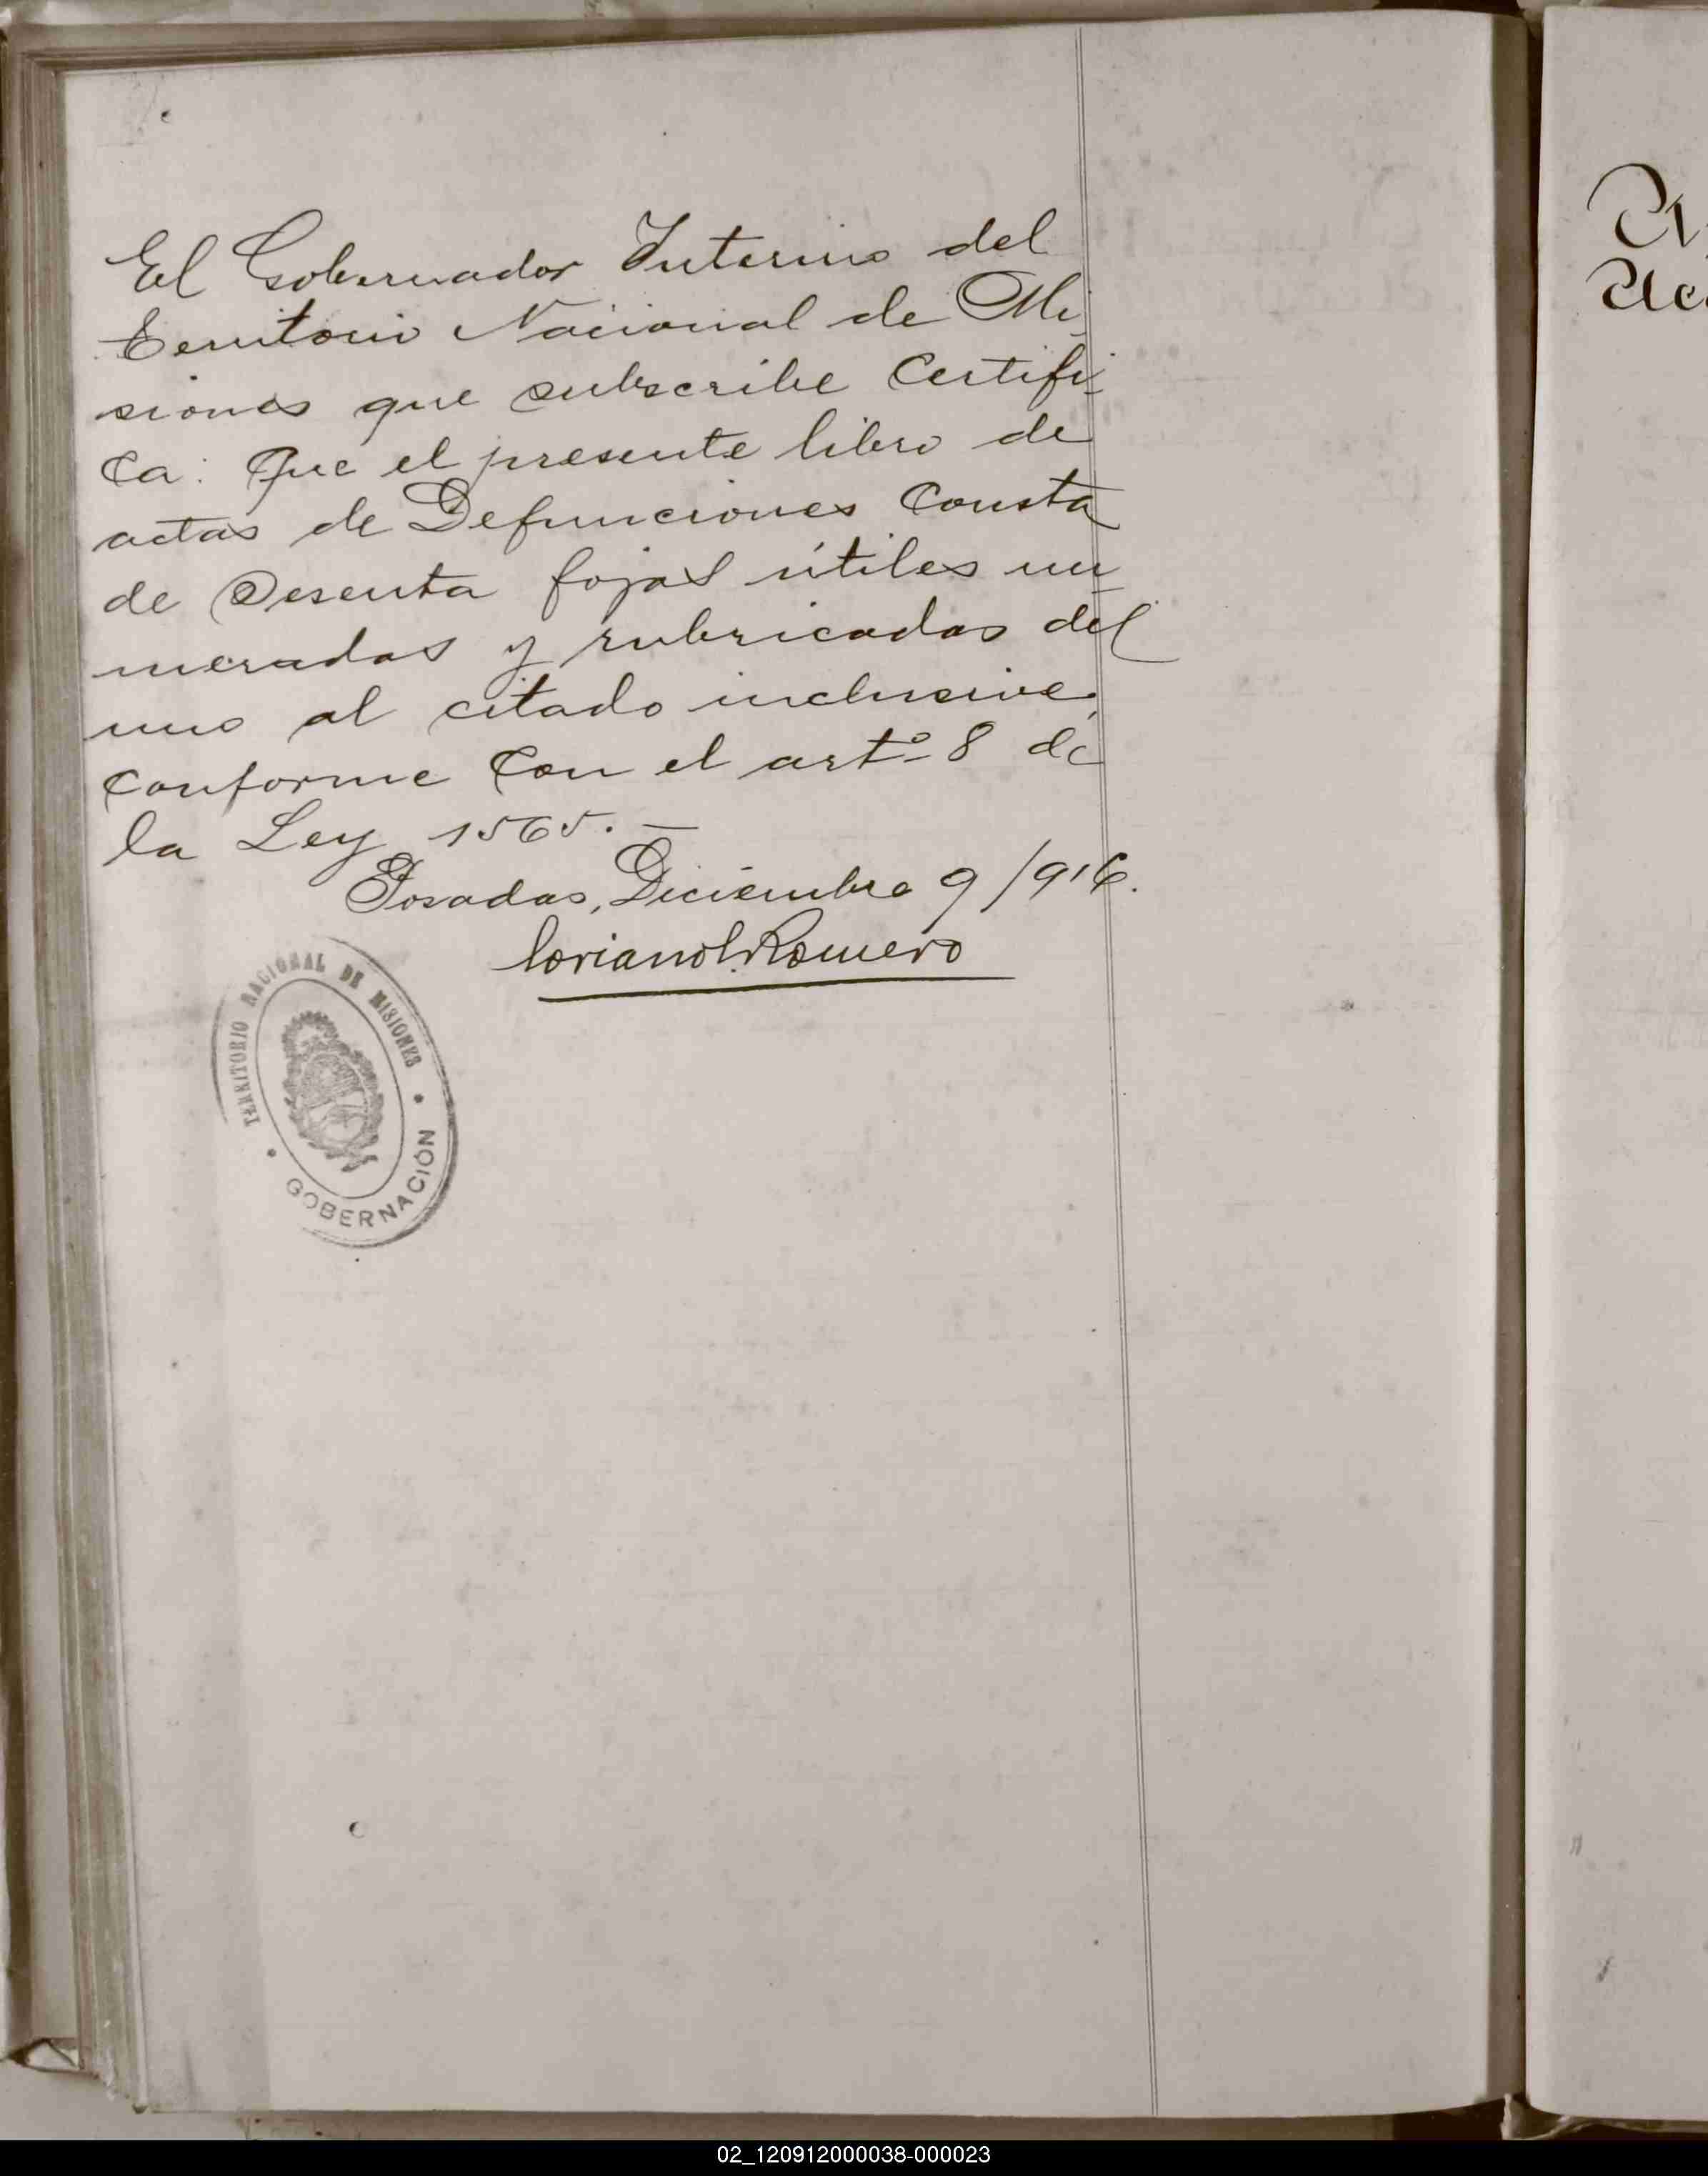 El Gobernador Interino del
territorio Nacional de Mi-
siones que subscribe Certifi-
ca: Que el presente libro de
actas de Defunciones Consta
de Sesenta fojas útiles nu-
meradas y rubricadas del
uno al citado inclusive,
conforme con el artº 8 de
la Ley 1565. —
Posadas, Diciembre 9/916.
Romero
TERRITORIO NACIONAL DE MISIONES
GOBERNACIÓN
02_120912000038-000023